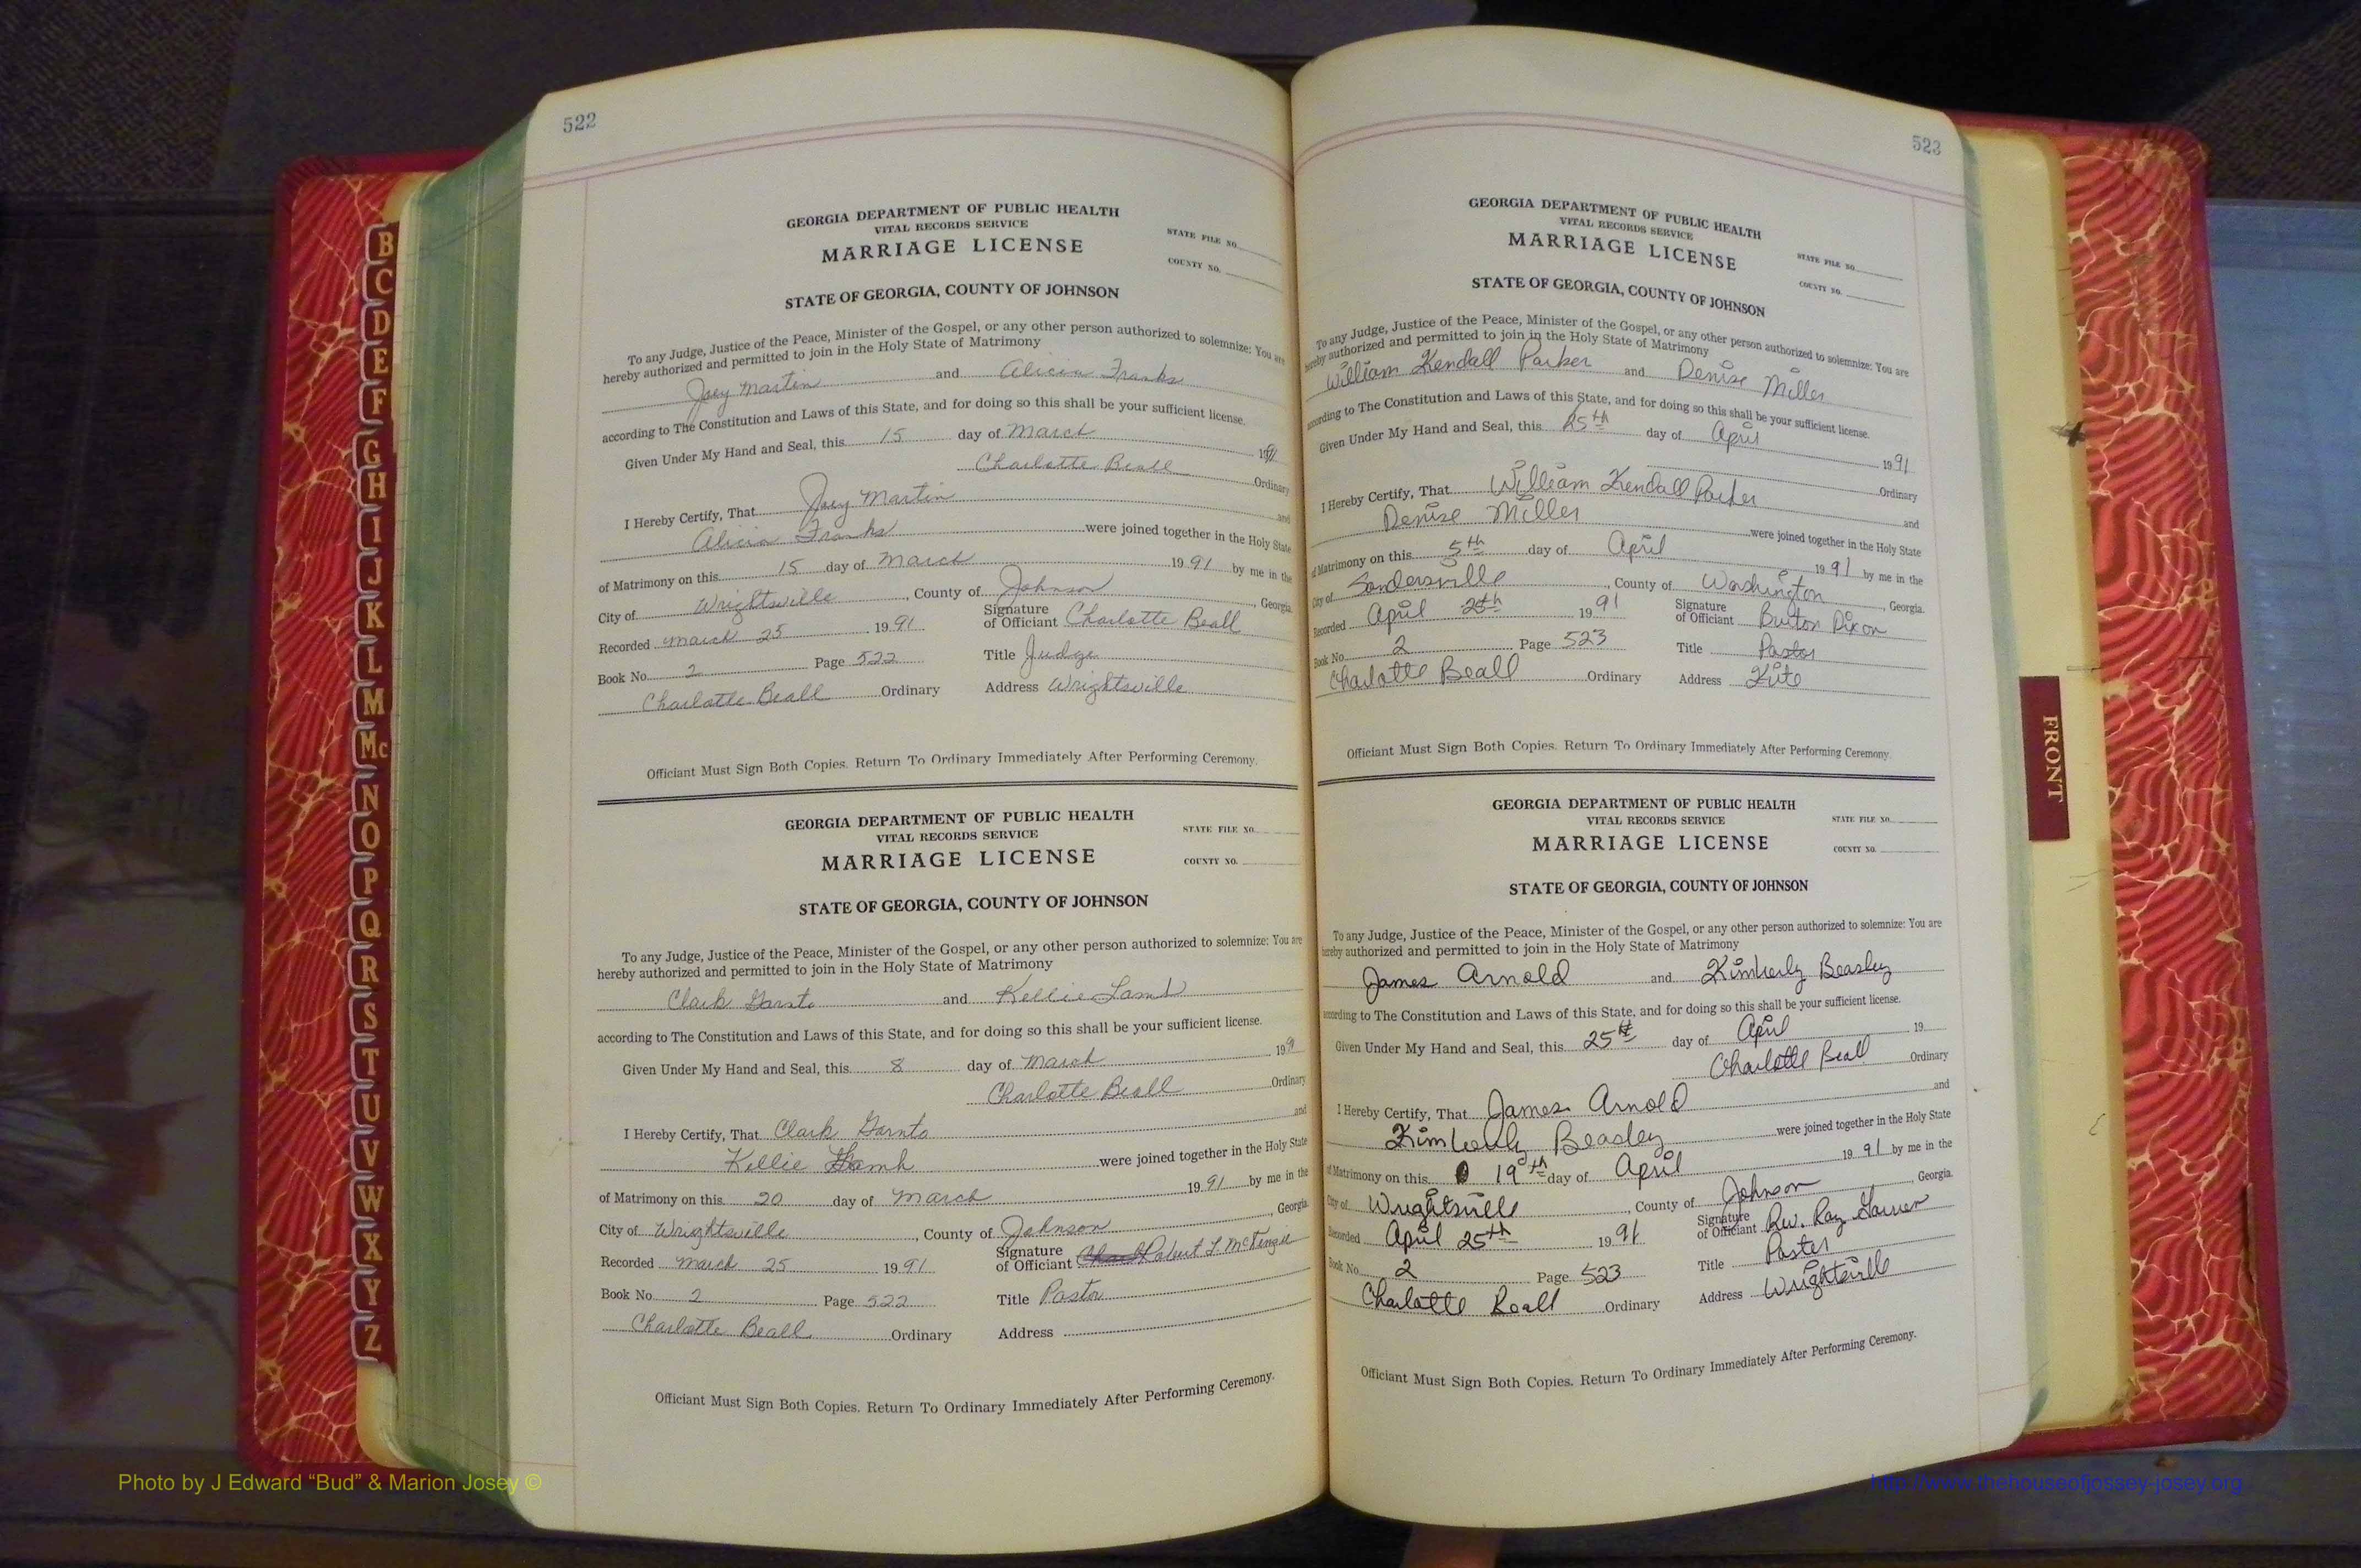 522
GEORGIA DEPARTMENT OF PUBLIC HEALTH
VITAL RECORDS SERVICE
MARRIAGE LICENSE
STATE FILE NO.
COUNTY NO.
STATE OF GEORGIA, COUNTY OF JOHNSON
To any Judge, Justice of the Peace, Minister of the Gospel, or any other person authorized to solemnize: You are
hereby authorized and permitted to join in the Holy State of Matrimony
Joey Martin and Alicia Franks
according to The Constitution and Laws of this State, and for doing so this shall be your sufficient license.
Given Under My Hand and Seal, this 15 day of March 1991
Charlotte Beall Ordinary
I Hereby Certify, That Joey Martin and
Alicia Franks were joined together in the Holy State
of Matrimony on this 15 day of March 1991 by me in the
City of Wrightsville, County of Johnson, Georgia.
Recorded March 25 1991 Signature of Officiant Charlotte Beall
Book No. 2 Page 522 Title Judge
Charlotte Beall Ordinary Address Wrightsville
Officiant Must Sign Both Copies. Return To Ordinary Immediately After Performing Ceremony.
GEORGIA DEPARTMENT OF PUBLIC HEALTH
VITAL RECORDS SERVICE
MARRIAGE LICENSE
STATE FILE NO.
COUNTY NO.
STATE OF GEORGIA, COUNTY OF JOHNSON
To any Judge, Justice of the Peace, Minister of the Gospel, or any other person authorized to solemnize: You are
hereby authorized and permitted to join in the Holy State of Matrimony
Clark Garnto and Kellie Lamb
according to The Constitution and Laws of this State, and for doing so this shall be your sufficient license.
Given Under My Hand and Seal, this 8 day of March 1991
Charlotte Beall Ordinary
I Hereby Certify, That Clark Garnto and
Kellie Lamb were joined together in the Holy State
of Matrimony on this 20 day of March 1991 by me in the
City of Wrightsville, County of Johnson, Georgia.
Recorded March 25 1991 Signature of Officiant Robert L
Book No. 2 Page 522 Title Pastor
Charlotte Beall Ordinary Address
Officiant Must Sign Both Copies. Return To Ordinary Immediately After Performing Ceremony.
523
GEORGIA DEPARTMENT OF PUBLIC HEALTH
VITAL RECORDS SERVICE
MARRIAGE LICENSE
STATE FILE NO.
COUNTY NO.
STATE OF GEORGIA, COUNTY OF JOHNSON
To any Judge, Justice of the Peace, Minister of the Gospel, or any other person authorized to solemnize: You are
hereby authorized and permitted to join in the Holy State of Matrimony
William Kendall Parker and Denise Miller
according to The Constitution and Laws of this State, and for doing so this shall be your sufficient license.
Given Under My Hand and Seal, this 25th day of April 1991
Ordinary
I Hereby Certify, That William Kendall Parker and
Denise Miller were joined together in the Holy State
of Matrimony on this 5th day of April 1991 by me in the
City of Sandersville, County of Washington, Georgia.
Recorded April 25th 1991 Signature of Officiant Burton Dixon
Book No. 2 Page 523 Title Pastor
Charlotte Beall Ordinary Address Kite
Officiant Must Sign Both Copies. Return To Ordinary Immediately After Performing Ceremony.
GEORGIA DEPARTMENT OF PUBLIC HEALTH
VITAL RECORDS SERVICE
MARRIAGE LICENSE
STATE FILE NO.
COUNTY NO.
STATE OF GEORGIA, COUNTY OF JOHNSON
To any Judge, Justice of the Peace, Minister of the Gospel, or any other person authorized to solemnize: You are
hereby authorized and permitted to join in the Holy State of Matrimony
James Arnold and Kimberly Beasley
according to The Constitution and Laws of this State, and for doing so this shall be your sufficient license.
Given Under My Hand and Seal, this 25th day of April 19
Charlotte Beall Ordinary
I Hereby Certify, That James Arnold and
Kimberly Beasley were joined together in the Holy State
of Matrimony on this 19th day of April 1991 by me in the
City of Wrightsville, County of Johnson, Georgia.
Recorded April 25th 1991 Signature of Officiant Rev. Ray
Book No. 2 Page 523 Title Pastor
Charlotte Beall Ordinary Address Wrightsville
Officiant Must Sign Both Copies. Return To Ordinary Immediately After Performing Ceremony.
B
C
D
E
F
G
H
I
J
K
L
M
Mc
N
O
P
Q
R
S
T
U
V
W
X
Y
Z
FRONT
Photo by J Edward “Bud” & Marion Josey ©
http://www.thehouseofjossey-josey.org